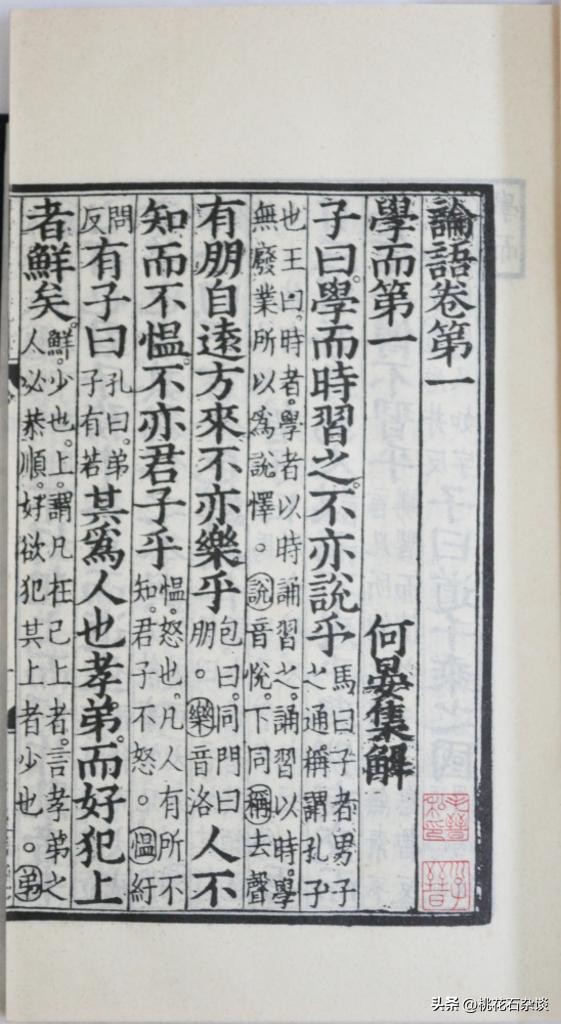 論語卷第一
學而第一 何晏集解
子曰學而時習之不亦說乎馬曰子者男子之通稱謂孔子
也王曰時者學者以時誦習之誦習以時學無廢業所以爲說懌。說音悅下同稱去聲
有朋自遠方來不亦樂乎包曰同門曰朋。樂音洛人不
知而不慍不亦君子乎慍怒也凡人有所不知君子不怒。慍紆
問反有子曰孔曰弟子有若其爲人也孝弟而好犯上
者鮮矣鮮少也上謂凡在己上者言孝弟之人必恭順好欲犯其上者少也。弟
毛晉私印
子晉
头条 @桃花石杂谈